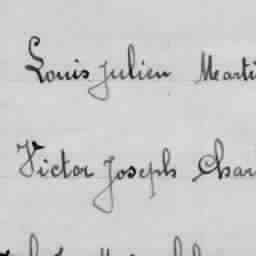 Louis Julien Marti
Victor Joseph Char